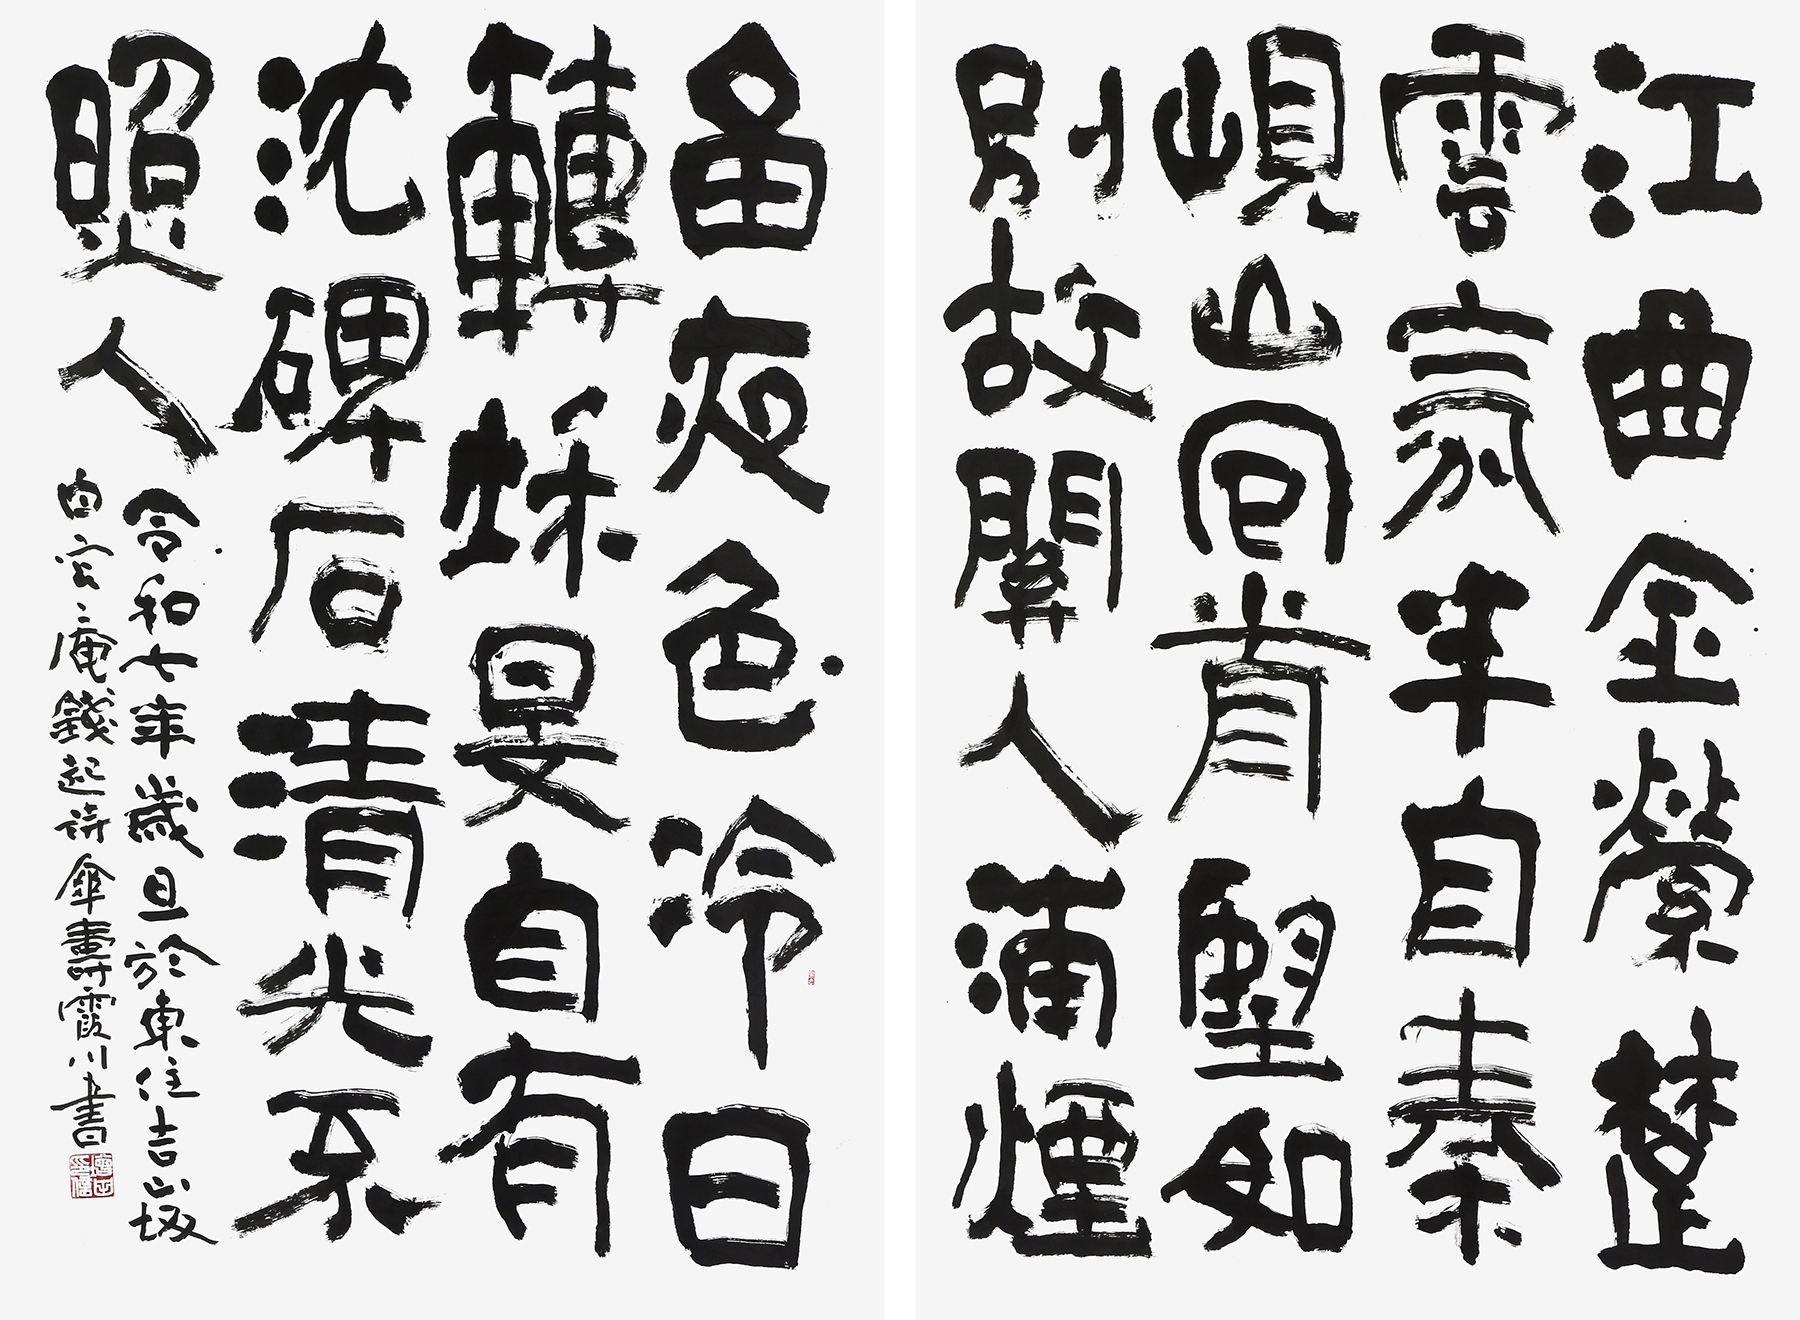 江曲金縈楚
雲氣半自秦
峴山回首望如
別故關人蒲煙
夜色冷日
轉秋旻自有
沈碑石清光不
照人
令和七年歲旦於東住吉山坂
白雲庵錢起詩傘壽霞川書